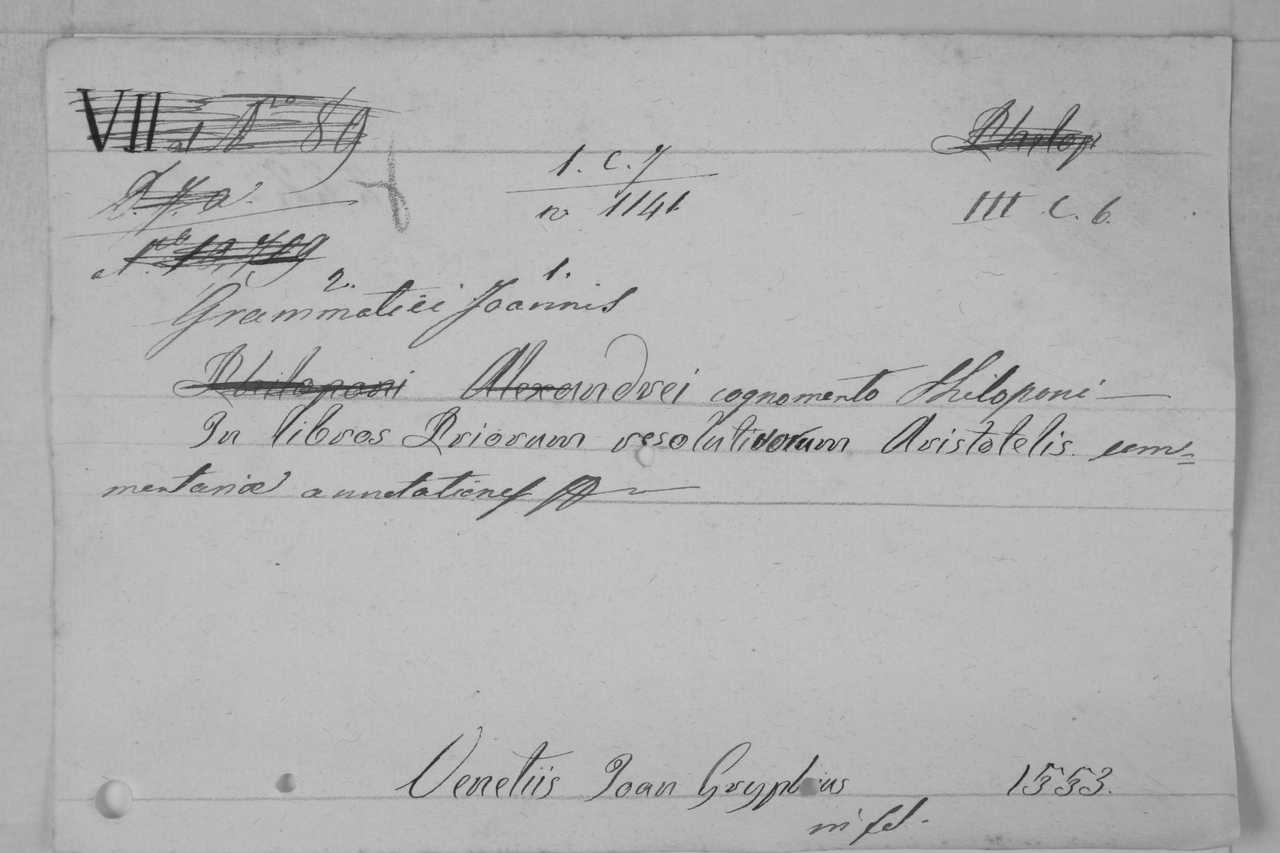 VII al No 89
Philop
1. C. 7
no 1141
III C. 6.
2. 1.
Grammatici Joannis
Philoponi Alexandrei cognomento Philoponi
In libros Priorum resolutivorum Aristotelis com=
mentariae annotationes
Venetiis Joan Gryphius 1553.
in fol.